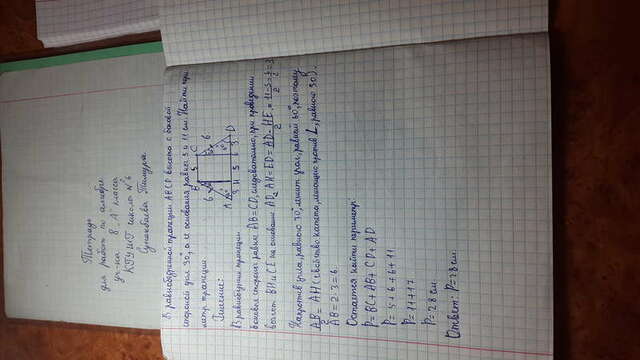 Тетрадь
для работ по алгебре
уч-ка 8 "А" класса
КГУ ИТ школа №6
Тимура
В равнобедренной трапеции ABCD высота с боковой
стороной угол 30°, а основания равны 5 и 11 см. Найти пери
метр трапеции.
B 5 C
6 6
A 3 H 5 E 3 D
Решение:
В равнобедрен трапеции
боковые стороны равны AB=CD, следовательно, при проведении
высот BH и CE на основание AD, AH=ED= AD-HE/2 = 11-5/2 = 6/2 = 3
Напротив угла, равного 30° лежит угол, равной 30°, поэтому
AB/2 = AH (свойство катета, лежащего против L, равного 30).
AB=2·3=6.
Остается найти периметр:
P=BC+AB+CD+AD
P=5+6+6+11
P=11+17
P=28 см.
Ответ: P=28 см